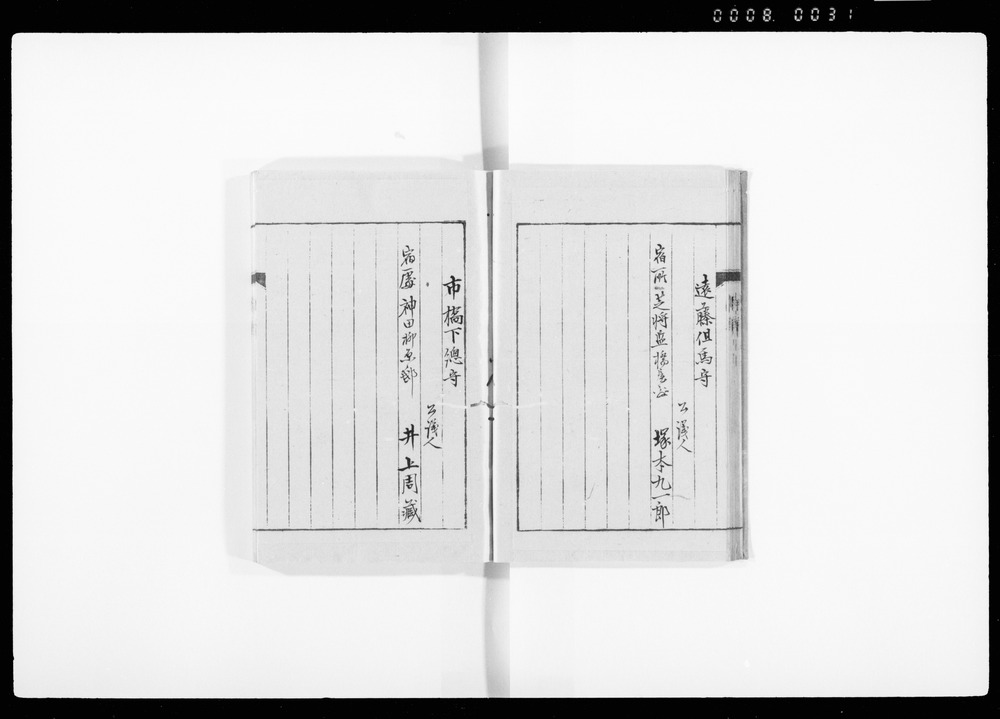 0008. 0031
遠藤但馬守
公議人
宿所芝将監橋
塚本九一郎
市橋下總守
公議人
宿處神田柳原邸
井上周藏